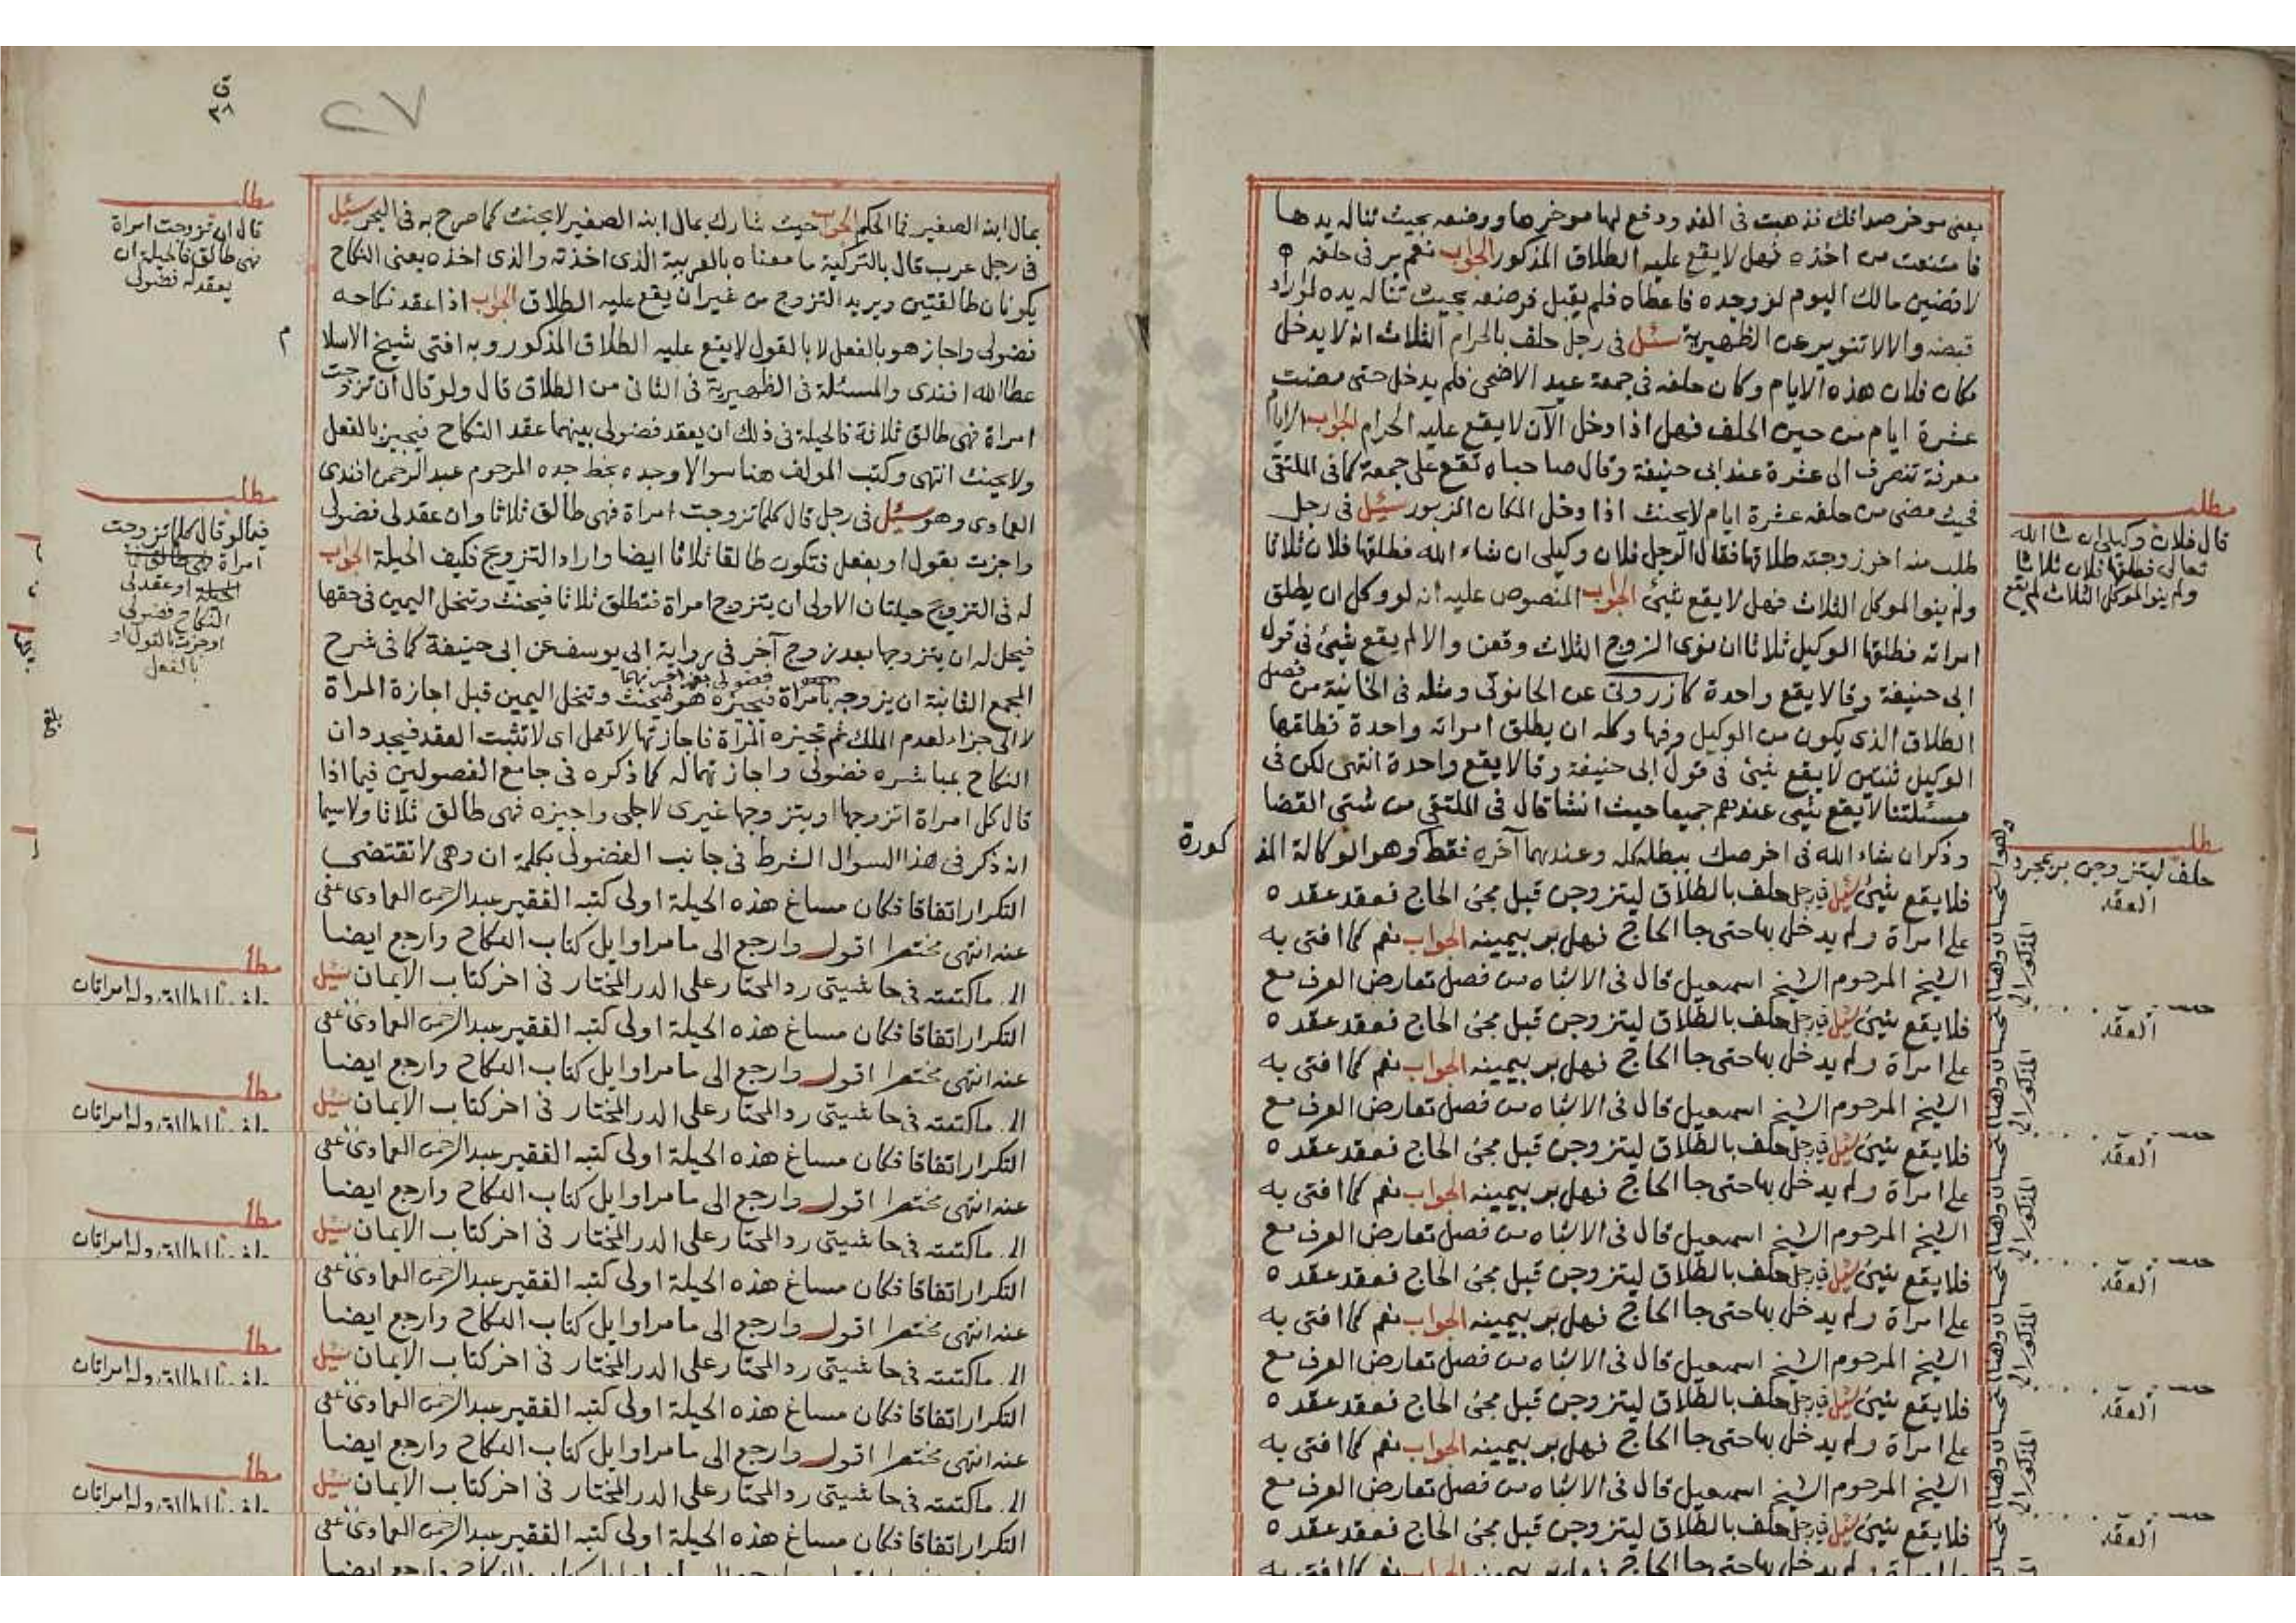 بمعنى موخر صداقك فذهبت فى الغد ودفع لها موخرها ووضعه بحيث تناله يدها
فامتنعت من اخذه فهل لا يقع عليه الطلاق المذكور الجواب نعم بر فى حلفه
لاقضين مالك اليوم لو وجده فاعطاه فلم يقبل فوضعه بحيث تناله يده لو اراد
قبضه والا لا تنوير عن الظهيرية سئل فى رجل حلف بالحرام الثلاث انه لا يدخل
مكان فلان هذه الايام وكان حلفه فى جمعة عيد الاضحى فلم يدخل حتى مضت
عشرة ايام من حين الحلف فهل اذا دخل الآن لا يقع عليه الحرام الجواب الايام
معرفة تنصرف الى عشرة عند ابى حنيفة وقال صاحباه تقع على جمعة كما فى الملتقى
فحيث مضى من حلفه عشرة ايام لا يحنث اذا دخل المكان المزبور سئيل فى رجل
طلب منه اخر زوجته طلاقها فقال الرجل فلان وكيلى ان شاء الله فطلقها فلان ثلاثا
ولم ينو الموكل الثلاث فهل لا يقع شيئ الجواب المنصوص عليه انه لو وكل ان يطلق
امراته فطلقها الوكيل ثلاثا ان نوى الزوج الثلاث وقعن والا لم يقع شيئ فى قول
ابى حنيفة وقالا يقع واحدة كازرونى عن الحانوتى ومثله فى الخانية من فصل
الطلاق الذى يكون من الوكيل وفيها وكله ان يطلق امراته واحدة فطلقها
الوكيل ثنتين لا يقع شيئ فى قول ابى حنيفة وقالا يقع واحدة انتهى لكن فى
مسئلتنا لا يقع شيئ عندهم جميعا حيث انشا قال فى الملتقى من شتى القضا
وذكر ان شاء الله فى اخر صك يبطل كله وعندهما آخره فقط وهو الوكالة المذ
كورة
فلا يقع شيئ سئل فى رجل حلف بالطلاق ليتزوجن قبل مجئ الحاج فعقد عقده
على امراة ولم يدخل بها حتى جا الحاج فهل بر بيمينه الجواب نعم كما افتى به
الشيخ المرحوم الشيخ اسمعيل قال فى الاشباه من فصل تعارض العرف مع
فلا يقع شيئ سئل فى رجل حلف بالطلاق ليتزوجن قبل مجئ الحاج فعقد عقده
على امراة ولم يدخل بها حتى جا الحاج فهل بر بيمينه الجواب نعم كما افتى به
الشيخ المرحوم الشيخ اسمعيل قال فى الاشباه من فصل تعارض العرف مع
فلا يقع شيئ سئل فى رجل حلف بالطلاق ليتزوجن قبل مجئ الحاج فعقد عقده
على امراة ولم يدخل بها حتى جا الحاج فهل بر بيمينه الجواب نعم كما افتى به
الشيخ المرحوم الشيخ اسمعيل قال فى الاشباه من فصل تعارض العرف مع
فلا يقع شيئ سئل فى رجل حلف بالطلاق ليتزوجن قبل مجئ الحاج فعقد عقده
على امراة ولم يدخل بها حتى جا الحاج فهل بر بيمينه الجواب نعم كما افتى به
الشيخ المرحوم الشيخ اسمعيل قال فى الاشباه من فصل تعارض العرف مع
فلا يقع شيئ سئل فى رجل حلف بالطلاق ليتزوجن قبل مجئ الحاج فعقد عقده
على امراة ولم يدخل بها حتى جا الحاج فهل بر بيمينه الجواب نعم كما افتى به
الشيخ المرحوم الشيخ اسمعيل قال فى الاشباه من فصل تعارض العرف مع
فلا يقع شيئ سئل فى رجل حلف بالطلاق ليتزوجن قبل مجئ الحاج فعقد عقده
مطلب
قال فلان وكيلى ان شا الله
تعالى فطلقها فلان ثلاثا
ولم ينو الموكل الثلاث لم يقع
مطلب
حلف ليتزوجن بر بمجرد
العقد
العقد
العقد
العقد
العقد
العقد
٢٧
ق
٣٨
بمال ابنه الصغير فما الحكم الجواب حيث شارك بمال ابنه الصغير لا يحنث كما صرح به فى البحر سئيل
فى رجل عرب قال بالتركية ما معناه بالعربية الذى اخذته والذى اخذه يعنى النكاح
يكونان طالقتين ويريد التزوج من غير ان يقع عليه الطلاق الجواب اذا عقد نكاحه
فضولى واجاز هو بالفعل لا بالقول لا يقع عليه الطلاق المذكور وبه افتى شيخ الاسلا
م
عطا الله افندى والمسئلة فى الظهيرية فى الثانى من الطلاق قال ولو قال ان تزوجت
امراة فهى طالق ثلاثة فالحيلة فى ذلك ان يعقد فضولى بينهما عقد النكاح فيجيز بالفعل
ولا يحنث انتهى وكتب المولف هنا سوالا وجده بخط جده المرحوم عبد الرحمن افندى
العمادى وهو سئيل فى رجل قال كلما تزوجت امراة فهى طالق ثلاثا وان عقد لى فضولى
واجزت بقول او بفعل فتكون طالقا ثلاثا ايضا واراد التزويج فكيف الحيلة الجواب
له فى التزويج حيلتان الاولى ان يتزوج امراة فتطلق ثلاثا فيحنث وتنحل اليمين فى حقها
فيحل له ان يتزوجها بعد زوج آخر فى رواية ابى يوسف عن ابى حنيفة كما فى شرح
المجمع الثانية ان يزوجه بامراة فضولى بغير امرهما فيجيزه هو فيحنث وتنحل اليمين قبل اجازة المراة
لا الى جزاء لعدم الملك ثم تجيزه المراة فاجازتها لا تعمل اى لا تثبت العقد فيجددان
النكاح بمباشره فضولى واجازتهما له كما ذكره فى جامع الفصولين فيما اذا
قال كل امراة اتزوجها او يتزوجها غيرى لاجلى واجيزه فهى طالق ثلاثا ولا سيما
انه ذكر فى هذا السوال الشرط فى جانب الفضولى بكلمة ان وهى لا تقتضى
التكرار اتفاقا فكان مساغ هذه الحيلة اولى كتبه الفقير عبد الرحمن العمادى عفى
عنه انتهى مختصرا اقول وارجع الى ما مر اوايل كتاب النكاح وارجع ايضا
الى ما كتبته فى حاشيتى رد المحتار على الدر المختار فى اخر كتاب الايمان سئيل
التكرار اتفاقا فكان مساغ هذه الحيلة اولى كتبه الفقير عبد الرحمن العمادى عفى
عنه انتهى مختصرا اقول وارجع الى ما مر اوايل كتاب النكاح وارجع ايضا
الى ما كتبته فى حاشيتى رد المحتار على الدر المختار فى اخر كتاب الايمان سئيل
التكرار اتفاقا فكان مساغ هذه الحيلة اولى كتبه الفقير عبد الرحمن العمادى عفى
عنه انتهى مختصرا اقول وارجع الى ما مر اوايل كتاب النكاح وارجع ايضا
الى ما كتبته فى حاشيتى رد المحتار على الدر المختار فى اخر كتاب الايمان سئيل
التكرار اتفاقا فكان مساغ هذه الحيلة اولى كتبه الفقير عبد الرحمن العمادى عفى
عنه انتهى مختصرا اقول وارجع الى ما مر اوايل كتاب النكاح وارجع ايضا
الى ما كتبته فى حاشيتى رد المحتار على الدر المختار فى اخر كتاب الايمان سئيل
التكرار اتفاقا فكان مساغ هذه الحيلة اولى كتبه الفقير عبد الرحمن العمادى عفى
عنه انتهى مختصرا اقول وارجع الى ما مر اوايل كتاب النكاح وارجع ايضا
الى ما كتبته فى حاشيتى رد المحتار على الدر المختار فى اخر كتاب الايمان سئيل
التكرار اتفاقا فكان مساغ هذه الحيلة اولى كتبه الفقير عبد الرحمن العمادى عفى
مطلب
قال ان تزوجت امراة
فهى طالق فالحيلة ان
يعقد له فضولى
مطلب
فيما لو قال كلما تزوجت
امراة فهى طالق
الحيلة او عقد لى
النكاح فضولى
او جزت بالقول او
بالفعل